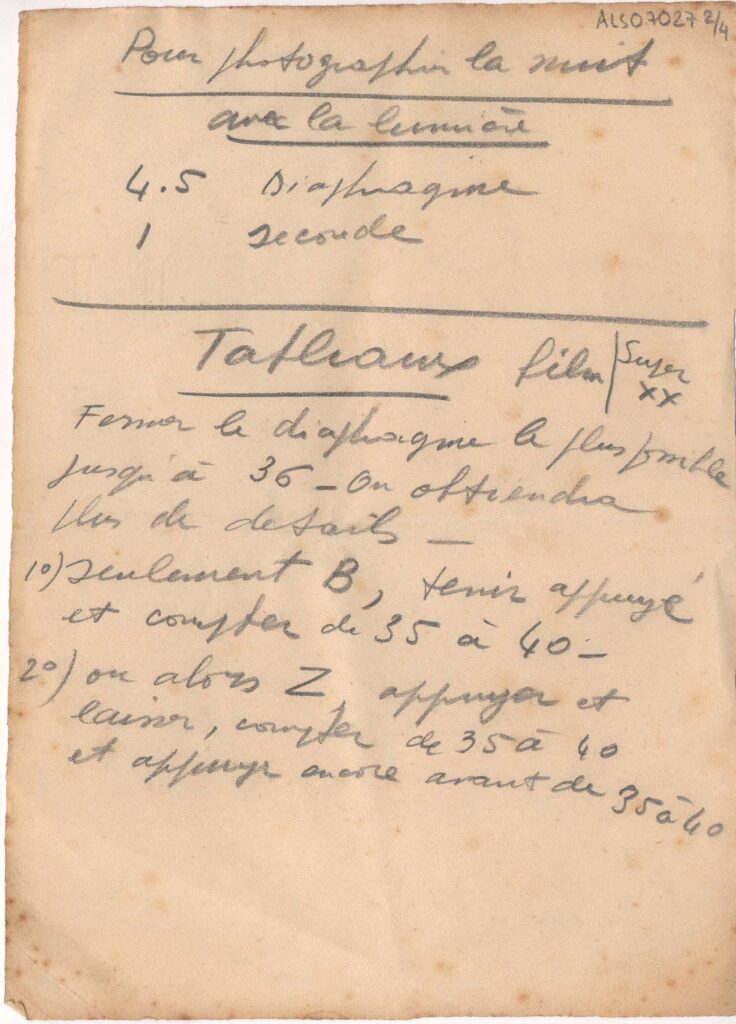 ALSO7027 2/4
Pour photographier la nuit
avec la lumière
4.5 Diaphragme
1 seconde
Tableaux film | Super XX
Fermer le diaphragme le plus possible
jusqu'à 36 - On obtiendra
plus de details -
1º) seulement B, tenir appuyé
et compter de 35 à 40 -
2º) ou alors Z, appuyer et
laisser, compter de 35 à 40
et appuyer encore avant de 35 à 40